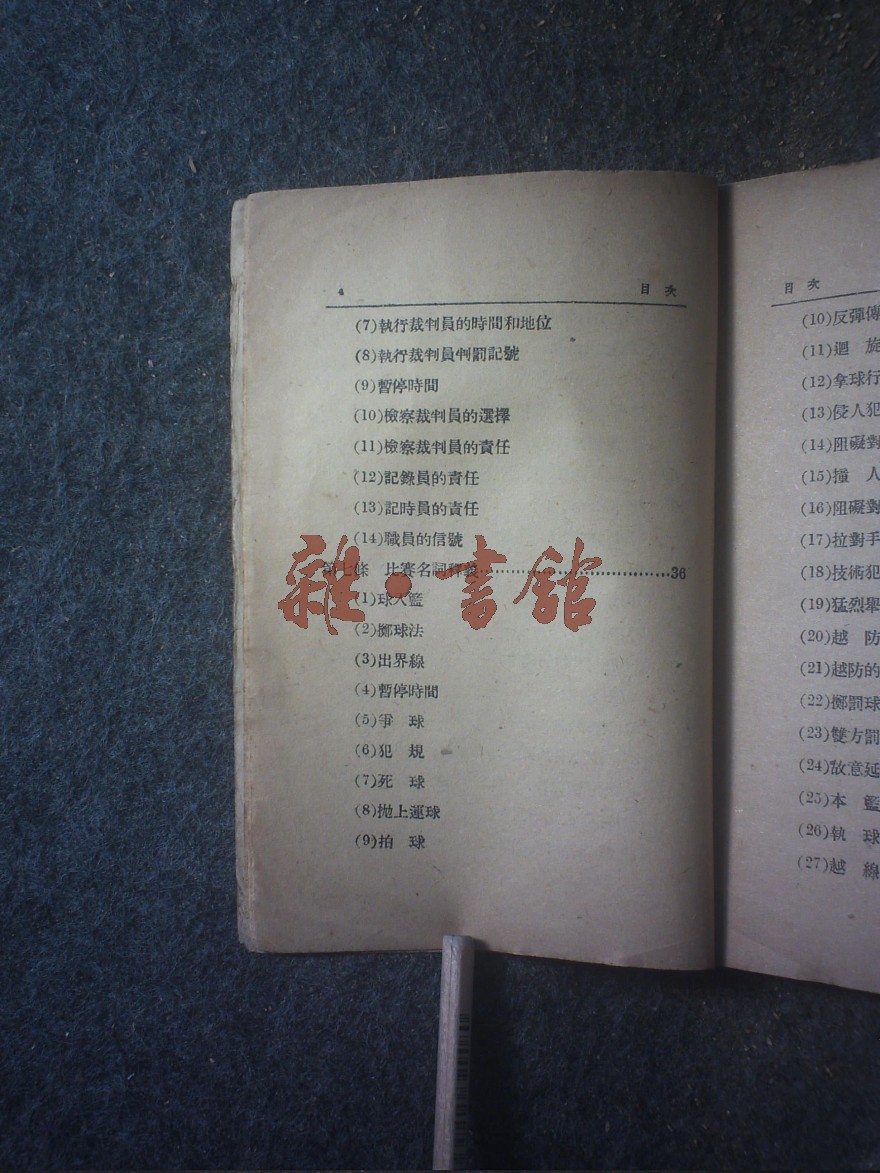 4 目次
(7)執行裁判員的時間和地位
(8)執行裁判員判罰記號
(9)暫停時間
(10)檢察裁判員的選擇
(11)檢察裁判員的責任
(12)記錄員的責任
(13)記時員的責任
(14)職員的信號
第七條 比賽名詞釋義……36
(1)球入籃
(2)擲球法
(3)出界線
(4)暫停時間
(5)爭 球
(6)犯 規
(7)死 球
(8)拋上運球
(9)拍 球
雜·書館
目次
(10)反彈傳
(11)迴 旋
(12)拿球行
(13)侵人犯
(14)阻礙對
(15)撞 人
(16)阻礙對
(17)拉對手
(18)技術犯
(19)猛烈舉
(20)越 防
(21)越防的
(22)擲罰球
(23)雙方罰
(24)故意延
(25)本 籃
(26)執 球
(27)越 線